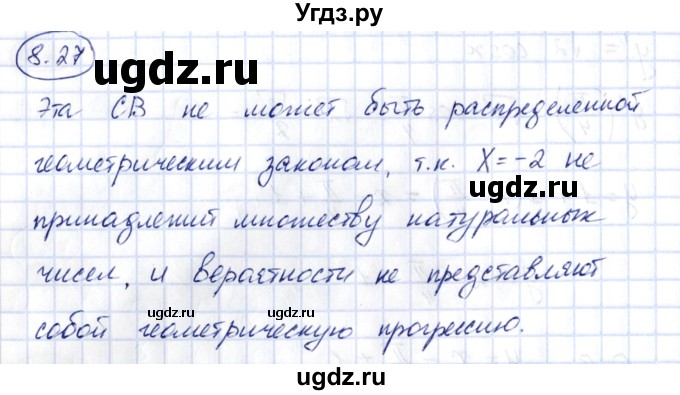 Угдз.ру
8.27
ugdz.ru
Эта СВ не может быть распределенной
геометрическим законом, т.к. X=-2 не
ugdz.ru
принадлежит множеству натуральных
чисел, и вероятности не представляют
ugdz.ru
ugdz.ru
собой геометрическую прогрессию.
ugdz.ru